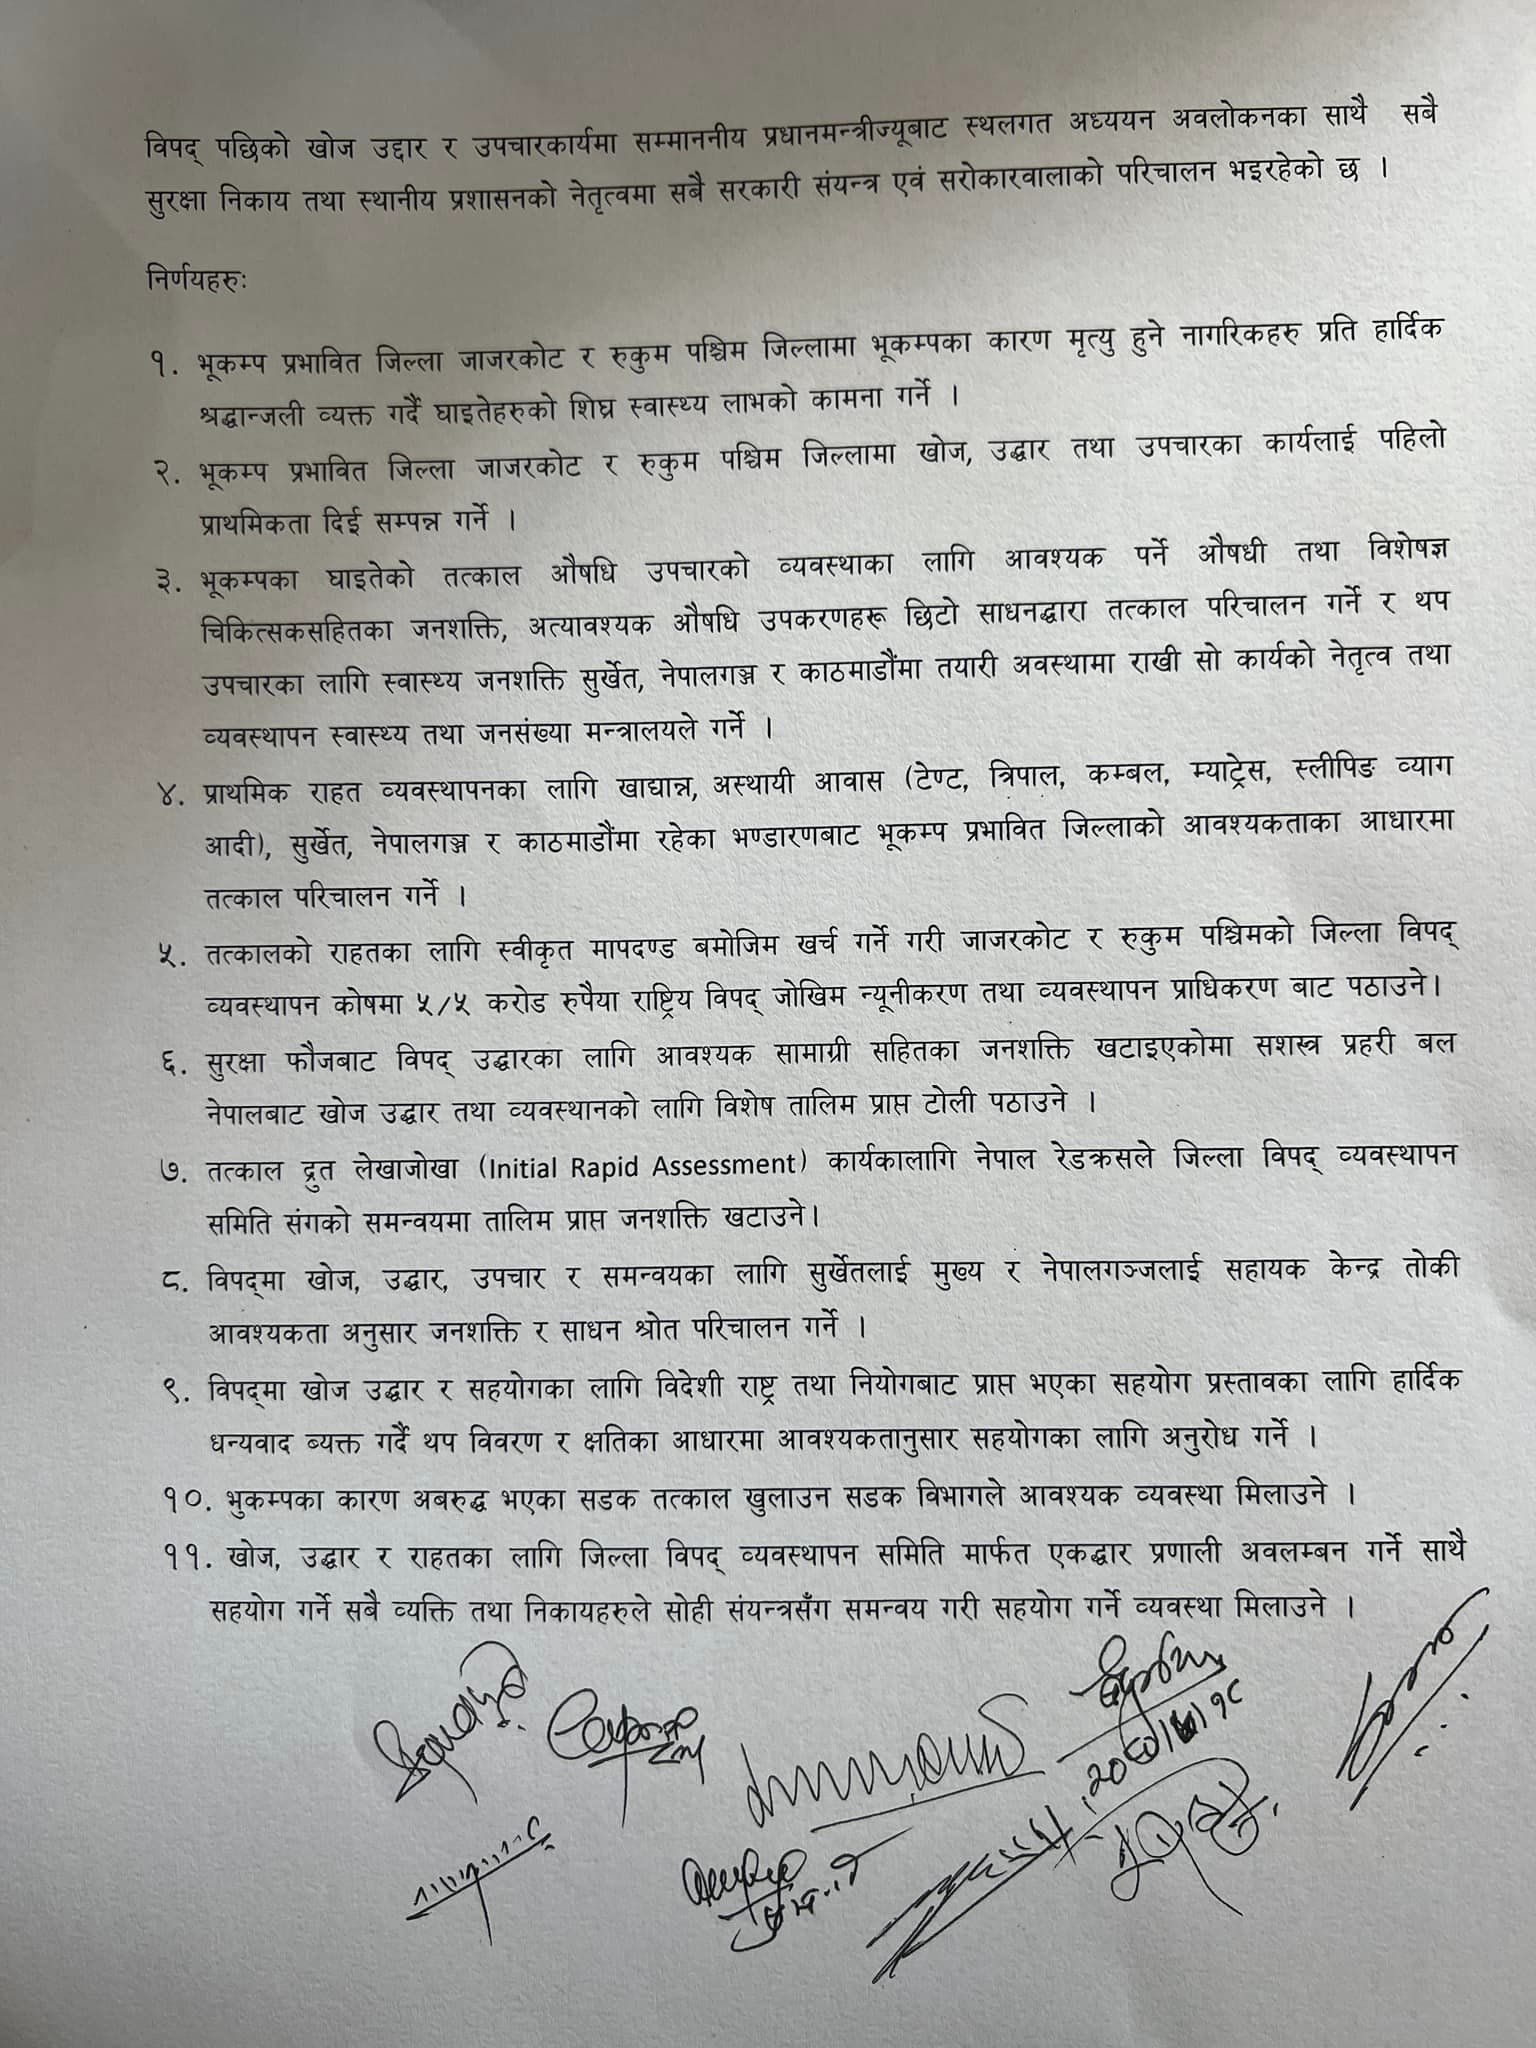 विपद् पछिको खोज उद्दार र उपचारकार्यमा सम्माननीय प्रधानमन्त्रीज्यूबाट स्थलगत अध्ययन अवलोकनका साथै सबै
सुरक्षा निकाय तथा स्थानीय प्रशासनको नेतृत्वमा सबै सरकारी संयन्त्र एवं सरोकारवालाको परिचालन भइरहेको छ ।
निर्णयहरुः
१. भूकम्प प्रभावित जिल्ला जाजरकोट र रुकुम पश्चिम जिल्लामा भूकम्पका कारण मृत्यु हुने नागरिकहरु प्रति हार्दिक
श्रद्धान्जली व्यक्त गर्दै घाइतेहरुको शिघ्र स्वास्थ्य लाभको कामना गर्ने ।
२. भूकम्प प्रभावित जिल्ला जाजरकोट र रुकुम पश्चिम जिल्लामा खोज, उद्धार तथा उपचारका कार्यलाई पहिलो
प्राथमिकता दिई सम्पन्न गर्ने ।
३. भूकम्पका घाइतेको तत्काल औषधि उपचारको व्यवस्थाका लागि आवश्यक पर्ने औषधी तथा विशेषज्ञ
चिकित्सकसहितका जनशक्ति, अत्यावश्यक औषधि उपकरणहरू छिटो साधनद्धारा तत्काल परिचालन गर्ने र थप
उपचारका लागि स्वास्थ्य जनशक्ति सुर्खेत, नेपालगञ्ज र काठमाडौंमा तयारी अवस्थामा राखी सो कार्यको नेतृत्व तथा
व्यवस्थापन स्वास्थ्य तथा जनसंख्या मन्त्रालयले गर्ने ।
४. प्राथमिक राहत व्यवस्थापनका लागि खाद्यान्न, अस्थायी आवास (टेण्ट, त्रिपाल, कम्बल, म्याट्रेस, स्लीपिङ व्याग
आदी), सुर्खेत, नेपालगञ्ज र काठमाडौंमा रहेका भण्डारणबाट भूकम्प प्रभावित जिल्लाको आवश्यकताका आधारमा
तत्काल परिचालन गर्ने ।
५. तत्कालको राहतका लागि स्वीकृत मापदण्ड बमोजिम खर्च गर्ने गरी जाजरकोट र रुकुम पश्चिमको जिल्ला विपद्
व्यवस्थापन कोषमा ५/५ करोड रुपैया राष्ट्रिय विपद् जोखिम न्यूनीकरण तथा व्यवस्थापन प्राधिकरण बाट पठाउने।
६. सुरक्षा फौजबाट विपद् उद्धारका लागि आवश्यक सामाग्री सहितका जनशक्ति खटाइएकोमा सशस्त्र प्रहरी बल
नेपालबाट खोज उद्धार तथा व्यवस्थानको लागि विशेष तालिम प्राप्त टोली पठाउने ।
७. तत्काल द्रुत लेखाजोखा (Initial Rapid Assessment) कार्यकालागि नेपाल रेडक्रसले जिल्ला विपद् व्यवस्थापन
समिति संगको समन्वयमा तालिम प्राप्त जनशक्ति खटाउने।
८. विपद्मा खोज, उद्धार, उपचार र समन्वयका लागि सुर्खेतलाई मुख्य र नेपालगञ्जलाई सहायक केन्द्र तोकी
आवश्यकता अनुसार जनशक्ति र साधन श्रोत परिचालन गर्ने ।
९. विपद्मा खोज उद्धार र सहयोगका लागि विदेशी राष्ट्र तथा नियोगबाट प्राप्त भएका सहयोग प्रस्तावका लागि हार्दिक
धन्यवाद ब्यक्त गर्दै थप विवरण र क्षतिका आधारमा आवश्यकतानुसार सहयोगका लागि अनुरोध गर्ने ।
१०. भुकम्पका कारण अबरुद्ध भएका सडक तत्काल खुलाउन सडक विभागले आवश्यक व्यवस्था मिलाउने ।
११. खोज, उद्धार र राहतका लागि जिल्ला विपद् व्यवस्थापन समिति मार्फत एकद्धार प्रणाली अवलम्बन गर्ने साथै
सहयोग गर्ने सबै व्यक्ति तथा निकायहरुले सोही संयन्त्रसँग समन्वय गरी सहयोग गर्ने व्यवस्था मिलाउने ।